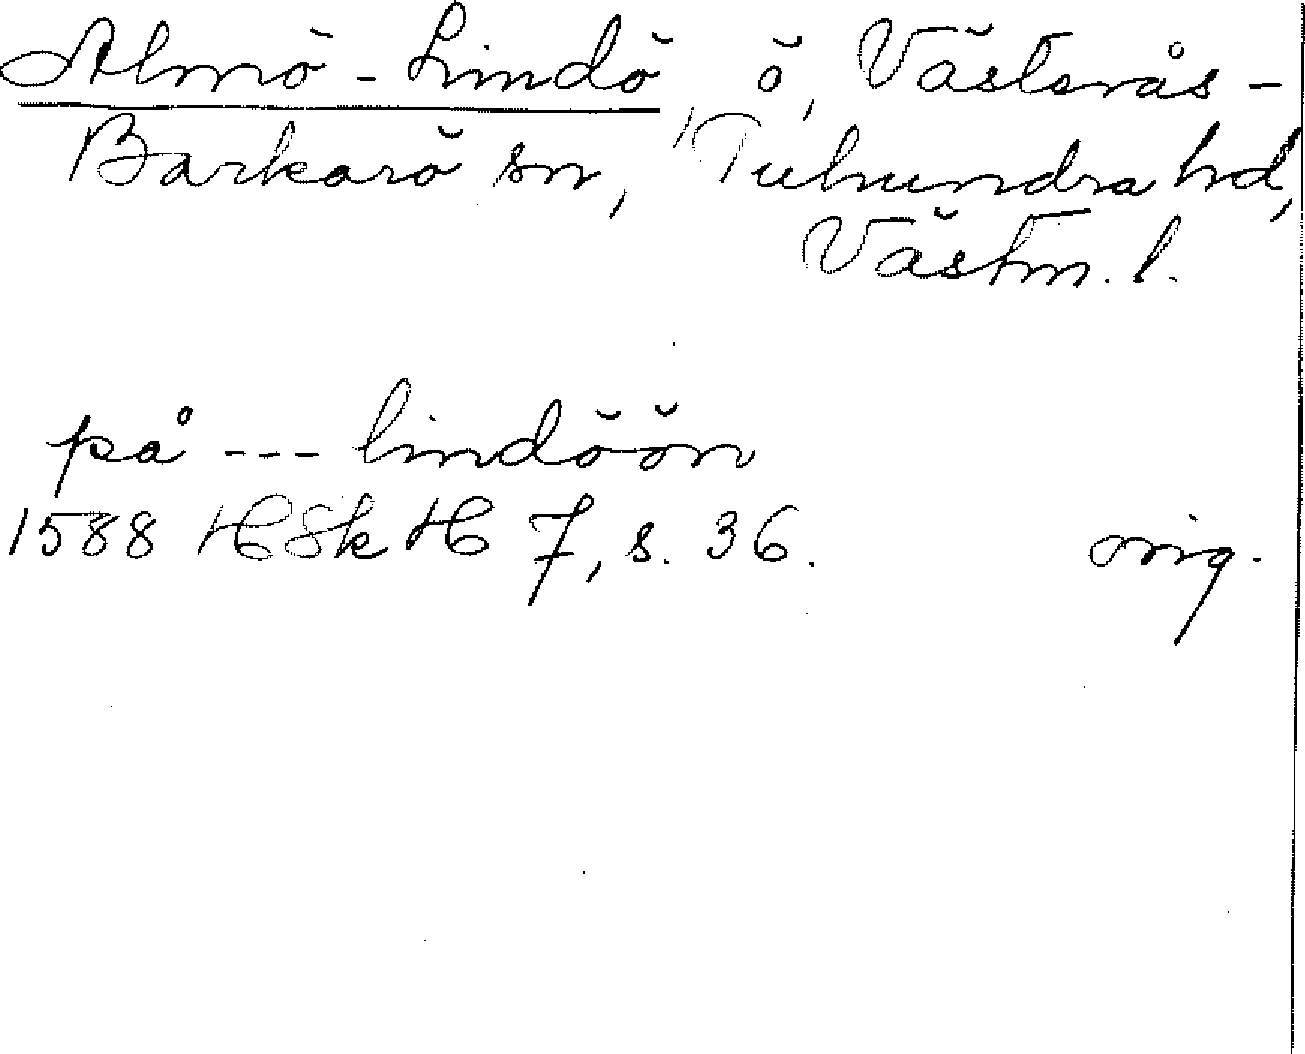 Almö-Lindö, ö, Västerås-
Barkarö sn, Tuhundra hd,
Västm. l.
på --- lindöön
1588 HSkH 7, s. 36. orig.